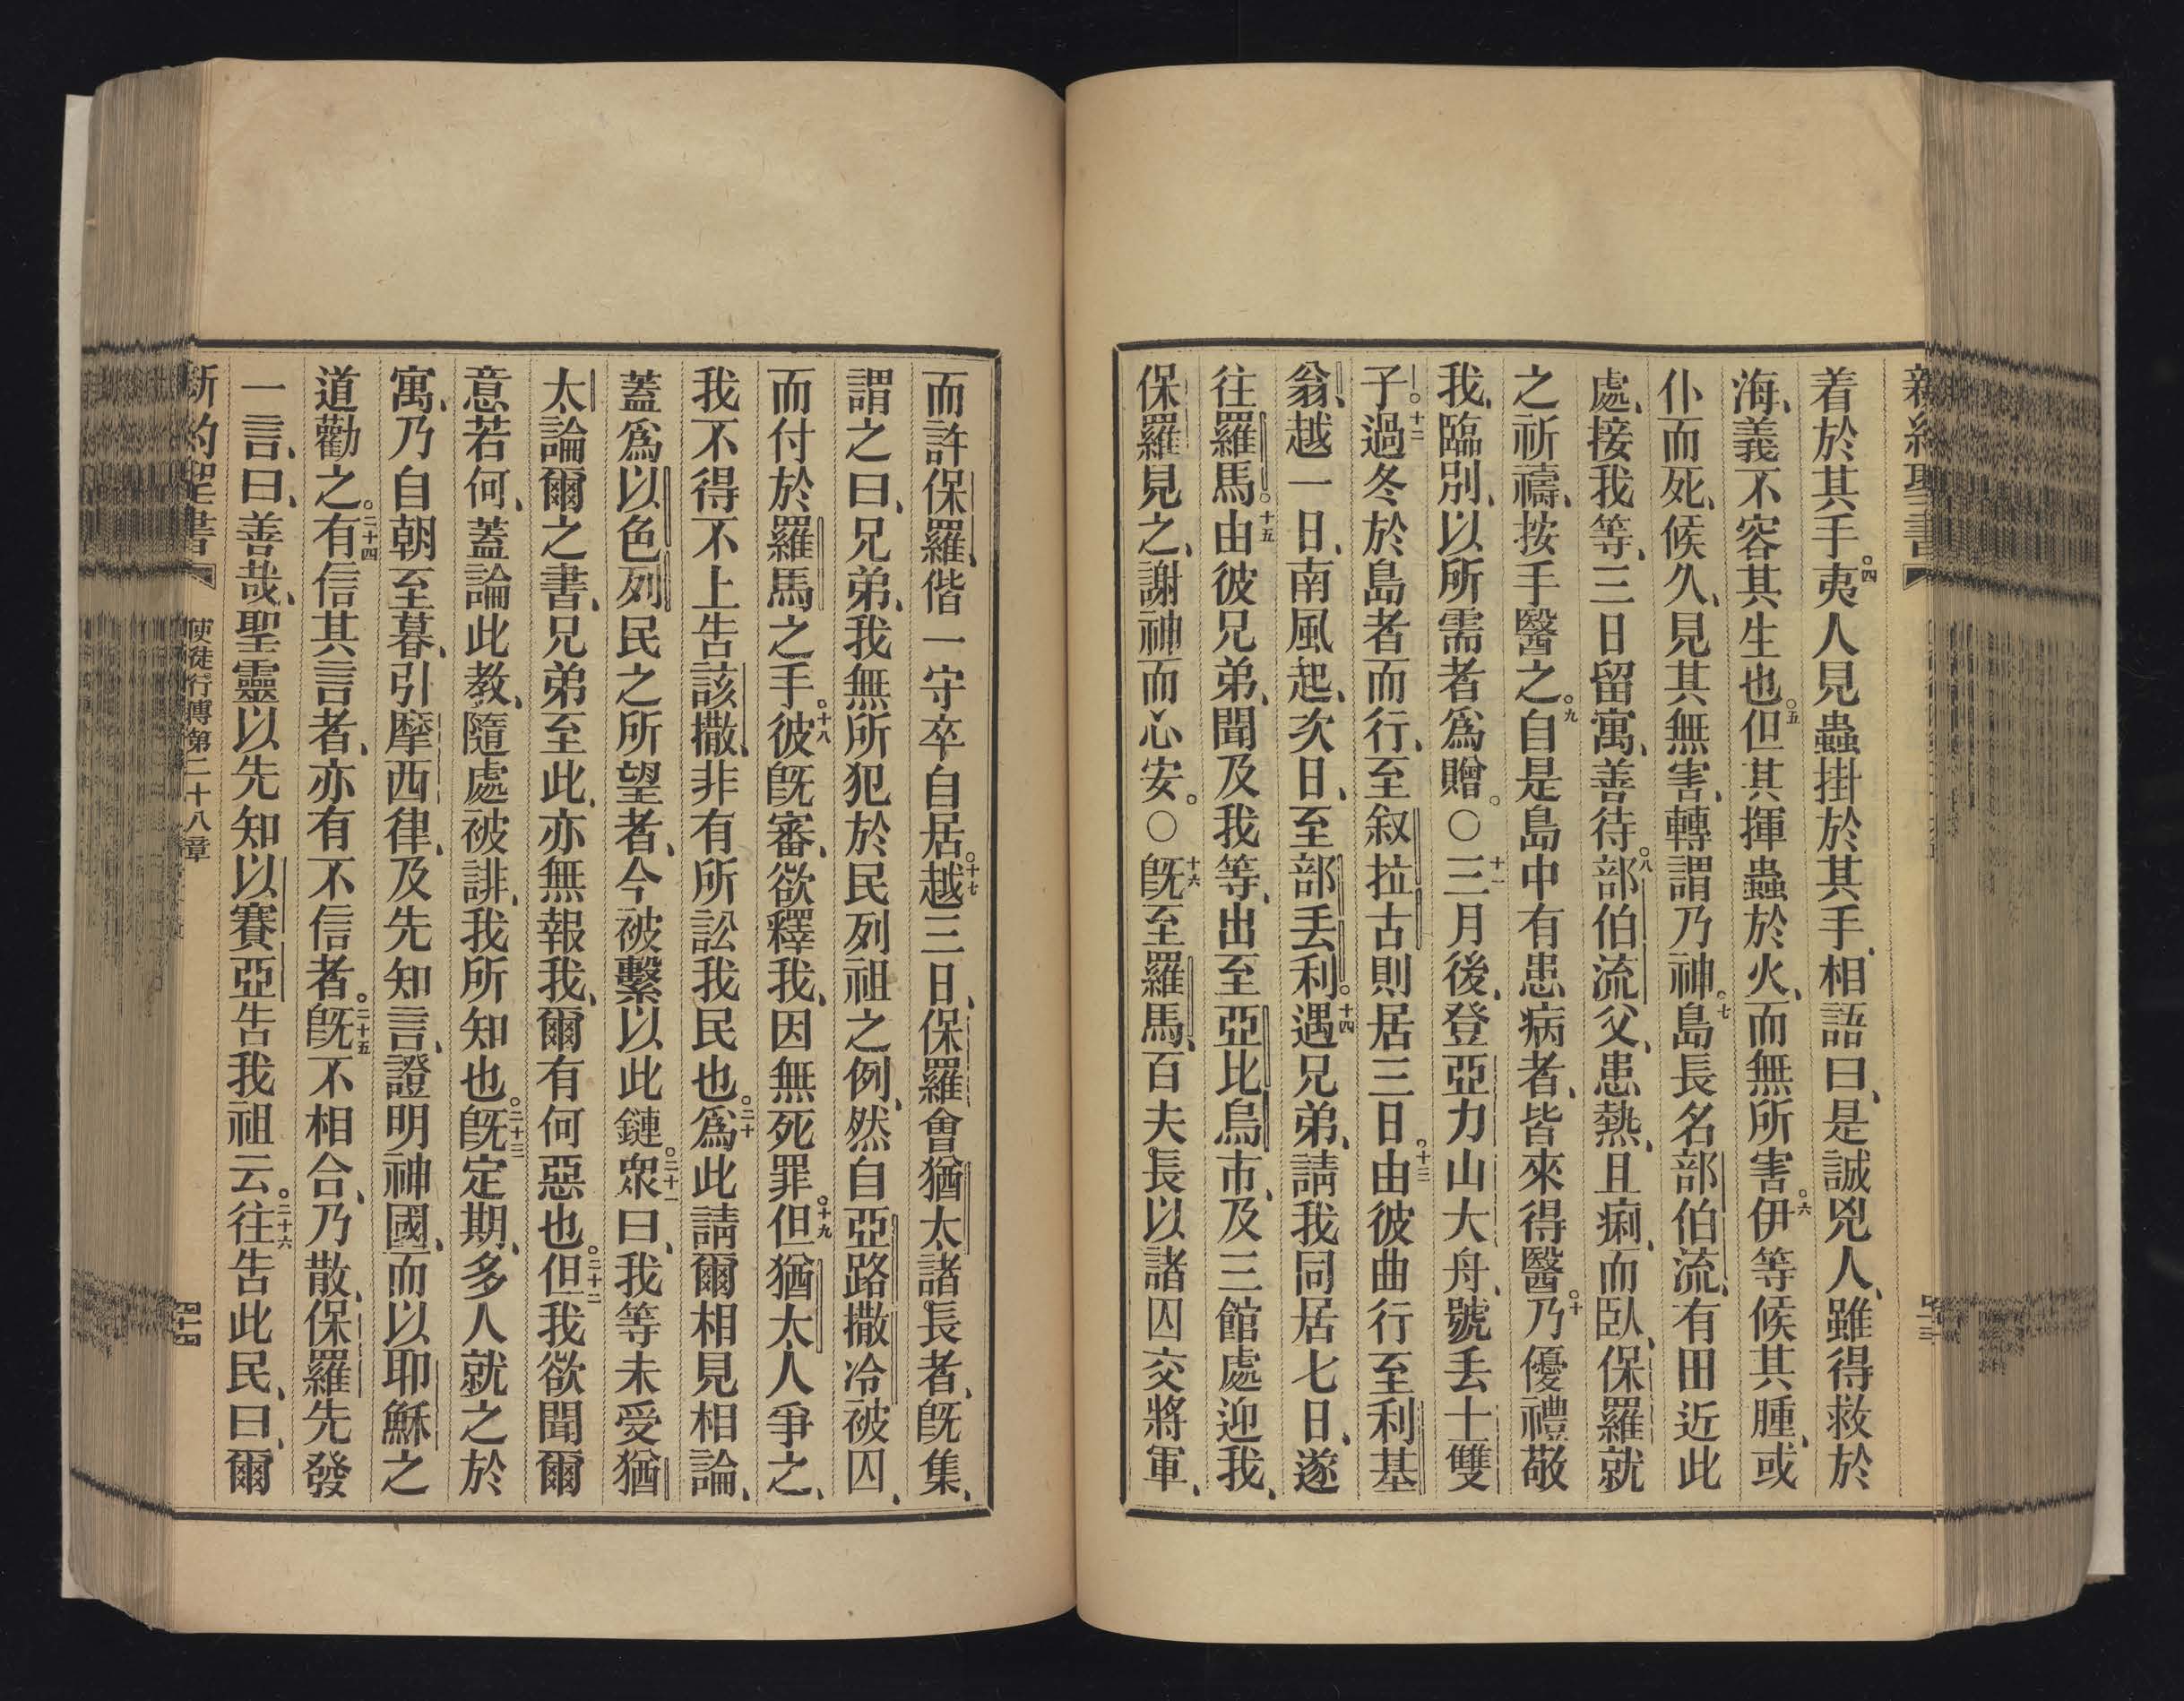 新約聖書
着於其手。四夷人見蟲掛於其手、相語曰、是誠兇人、雖得救於
海、義不容其生也。五但其揮蟲於火、而無所害。六伊等候其腫、或
仆而死、候久、見其無害、轉謂乃神。七島長名部伯流、有田近此
處、接我等、三日留寓、善待。八部伯流父、患熱、且痢、而臥、保羅就
之祈禱、按手醫之。九自是島中有患病者、皆來得醫。十乃優禮敬
我、臨別、以所需者爲贈。○十一三月後、登亞力山大舟、號丢士雙
子。十二過冬於島者而行、至叙拉古則居三日。十三由彼曲行至利基
翁、越一日、南風起、次日、至部丢利。十四遇兄弟、請我同居七日、遂
往羅馬。十五由彼兄弟、聞及我等、出至亞比烏市、及三館處迎我、
保羅見之、謝神而心安。○十六旣至羅馬、百夫長以諸囚交將軍、
而許保羅、偕一守卒自居。十七越三日、保羅會猶太諸長者、旣集、
謂之曰、兄弟、我無所犯於民列祖之例、然自亞路撒冷被囚、
而付於羅馬之手。十八彼旣審、欲釋我、因無死罪。十九但猶太人爭之、
我不得不上告該撒、非有所訟我民也。二十爲此請爾相見相論、
蓋爲以色列民之所望者、今被繫以此鏈。二十一眾曰、我等未受猶
太論爾之書、兄弟至此、亦無報我、爾有何惡也。二十二但我欲聞爾
意若何、蓋論此教、隨處被誹、我所知也。二十三旣定期、多人就之於
寓、乃自朝至暮、引摩西律、及先知言、證明神國、而以耶穌之
道勸之。二十四有信其言者、亦有不信者。二十五旣不相合、乃散、保羅先發
一言、曰、善哉、聖靈以先知以賽亞告我祖云。二十六往告此民、曰、爾
新約聖書 使徒行傳第二十八章 四十四